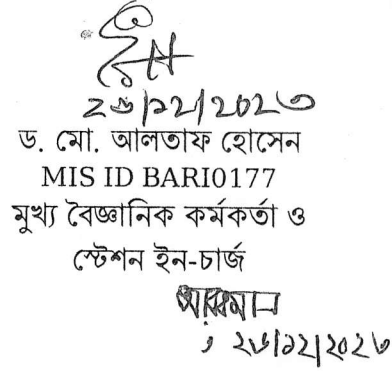 ২৬/১২/২০২৩
ড. মো. আলতাফ হোসেন
MIS ID BARI0177
মুখ্য বৈজ্ঞানিক কর্মকর্তা ও
স্টেশন ইন-চার্জ
২৬/১২/২০২৩